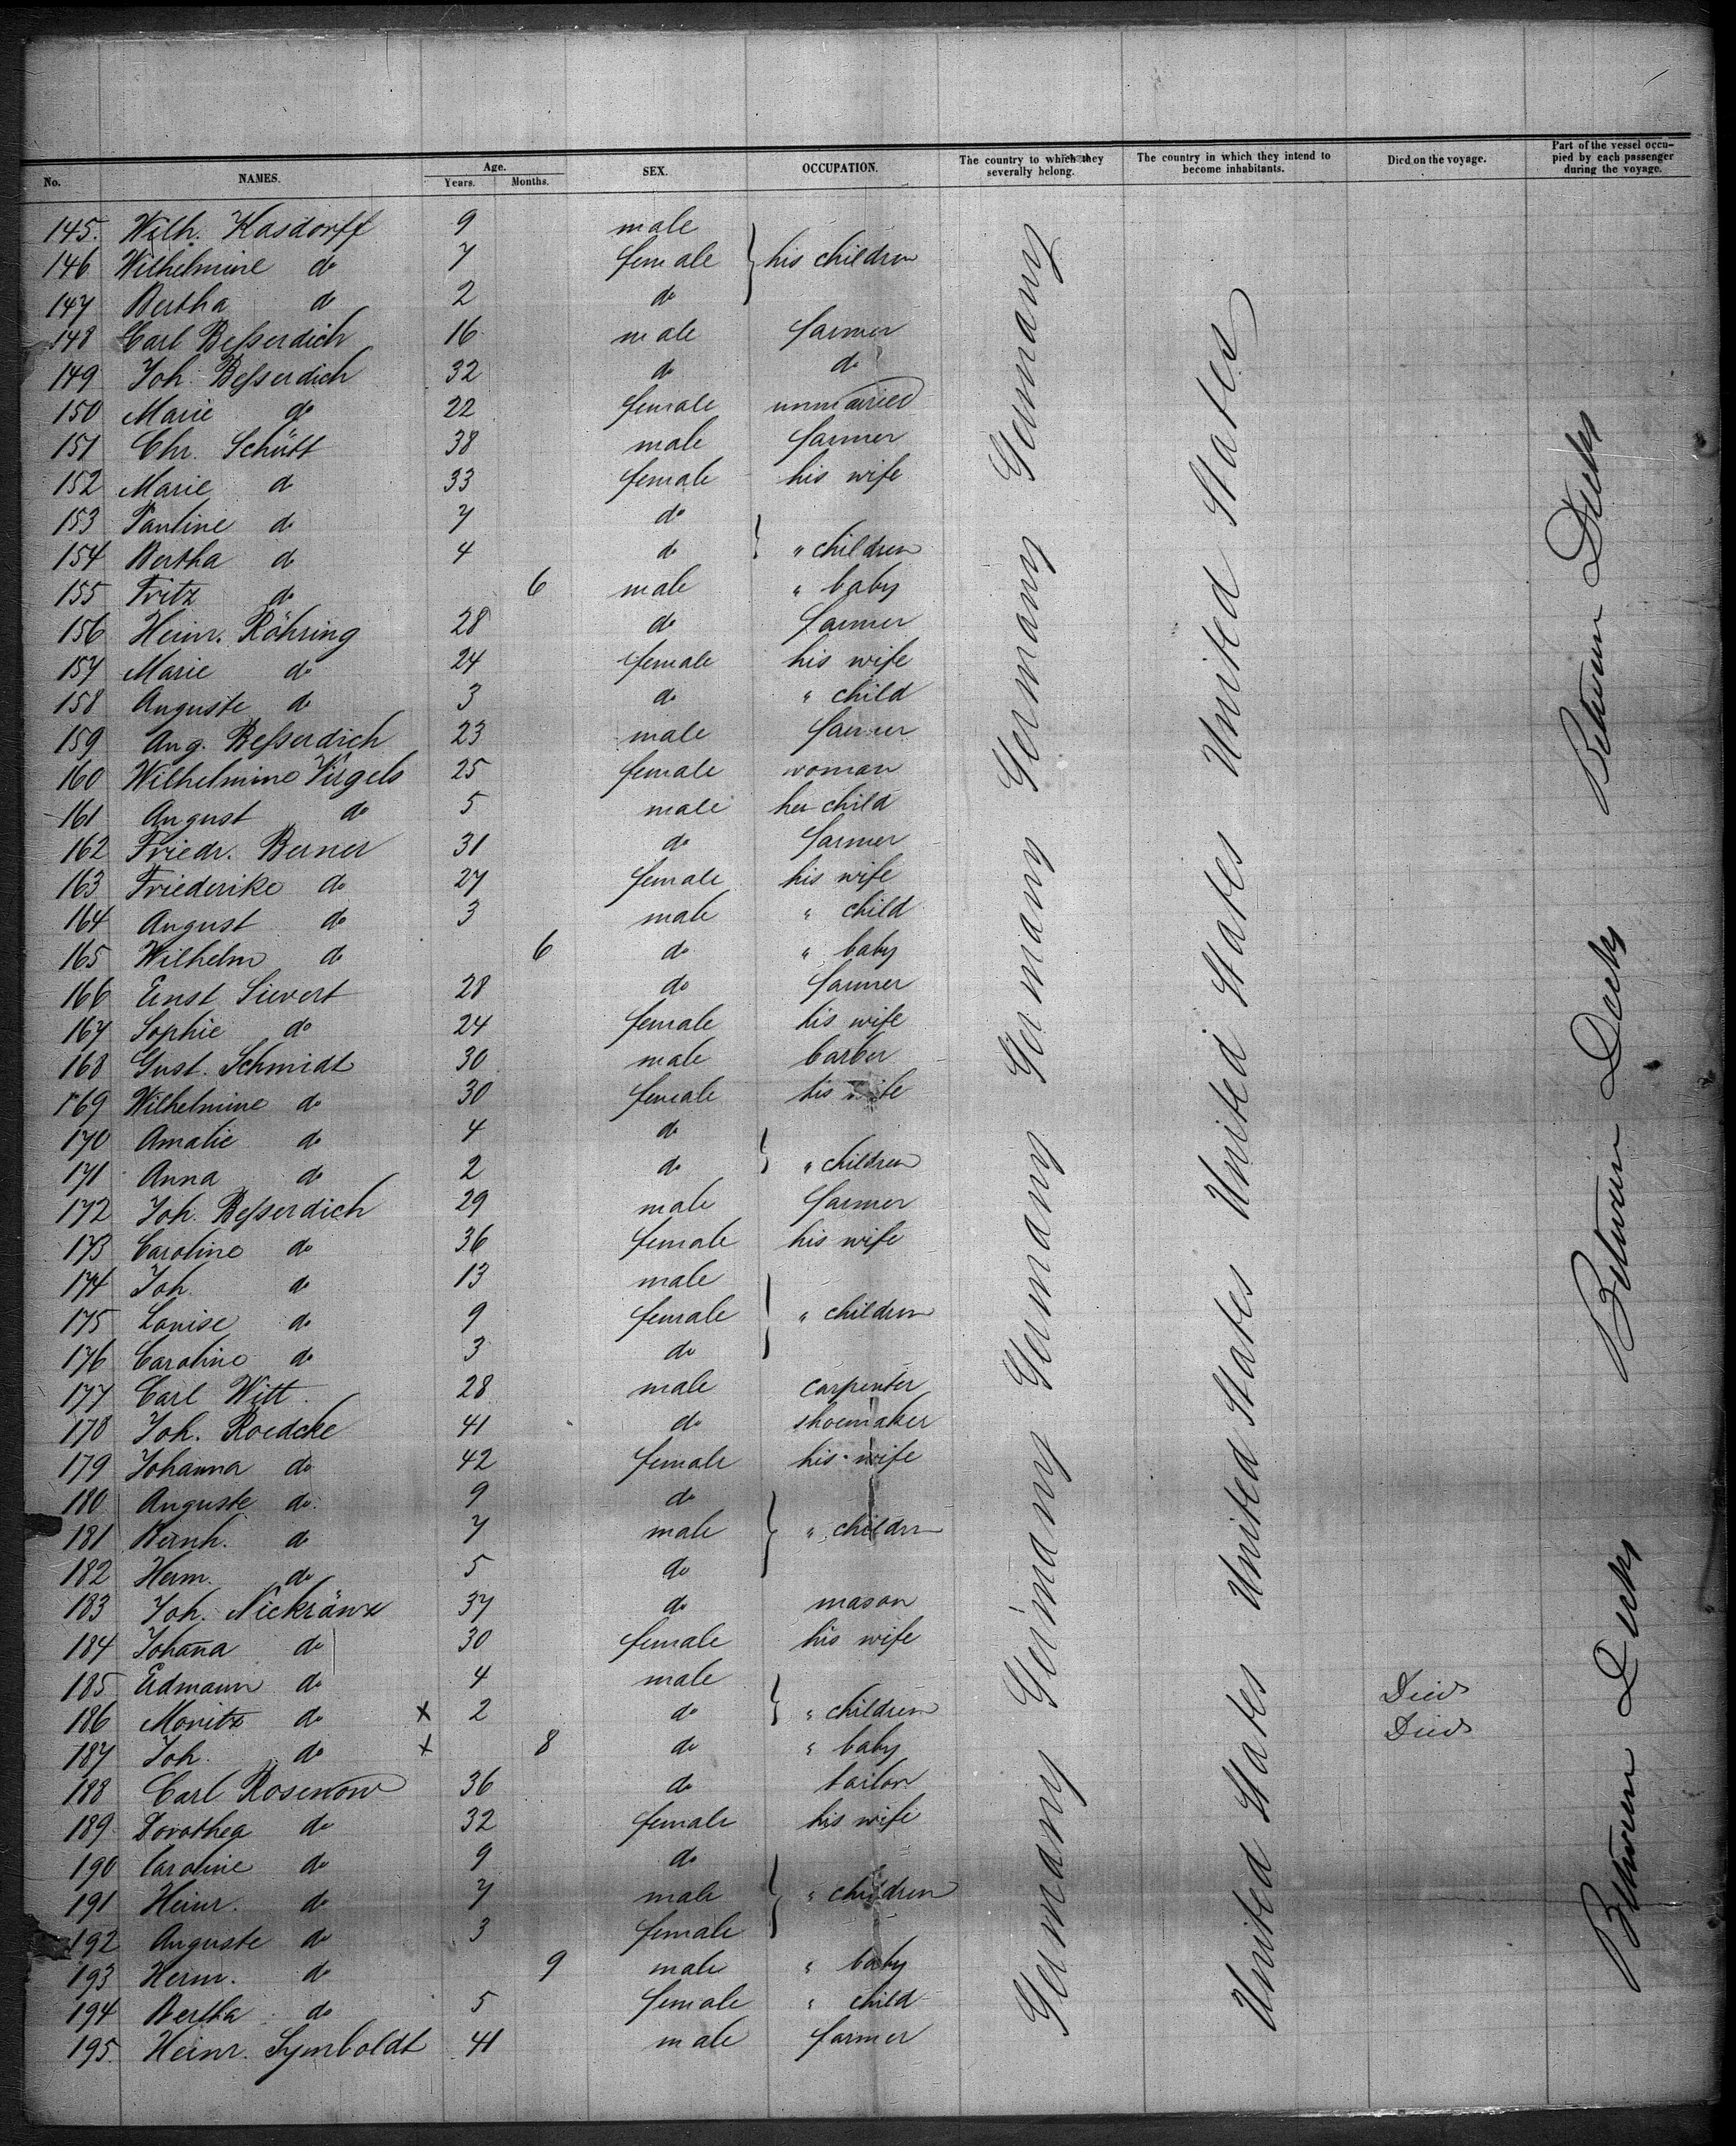 No. NAMES. Age. Years. Months. SEX. OCCUPATION. The country to which they severally belong. The country in which they intend to become inhabitants. Died on the voyage. Part of the vessel occupied by each passenger during the voyage.
145. Wilh. Kasdorff 9 male
146 Wilhelmine do 7 female } his children
147 Bertha do 2 do
148 Carl Beſserdich 16 male farmer
149 Joh. Beſserdich 32 do do
150 Marie do 22 female unmarried
151 Chr. Schütt 38 male farmer
152 Marie do 33 female his wife
153 Pauline do 7 do
154 Bertha do 4 do } " children
155 Fritz do 6 male " baby
156 Heinr. Röhring 28 do farmer
157 Marie do 24 female his wife
158 Auguste do 3 do " child
159 Aug. Beſserdich 23 male farmer
160 Wilhelmine Virgels 25 female woman
161 August do 5 male her child
162 Friedr. Berner 31 do farmer
163 Friederike do 27 female his wife
164 August do 3 male " child
165 Wilhelm do 6 do " baby
166 Ernst Sievert 28 do farmer
167 Sophie do 24 female his wife
168 Gust. Schmidt 30 male barber
169 Wilhelmine do 30 female his wife
170 Amalie do 4 do
171 Anna do 2 do } " children
172 Joh. Beſserdich 29 male farmer
173 Caroline do 36 female his wife
174 Joh. do 13 male
175 Louise do 9 female } " children
176 Caroline do 3 do
177 Carl Witt. 28 male carpenter
178 Joh. Roedcke 41 do shoemaker
179 Johanna do 42 female his wife
180 Auguste do. 9 do
181 Bernh. do 7 male } " children
182 Herm. do 5 do
183 Joh. Nickränz 37 do mason
184 Johan̄a do 30 female his wife
185 Edmann do 4 male
186 Moritz do x 2 do } " children Died
187 Joh. do x 8 do " baby Died
188 Carl Rosenow 36 do tailor
189 Dorothea do 32 female his wife
190 Caroline do 9 do
191 Heinr. do 7 male } " children
192 Auguste do 3 female
193 Herm. do 9 male " baby
194 Bertha do 5 female " child
195. Heinr. Symboldt 41 male farmer
Germany Germany Germany Germany Germany Germany
United States United States United States United States
Between Decks Between Decks Between Decks